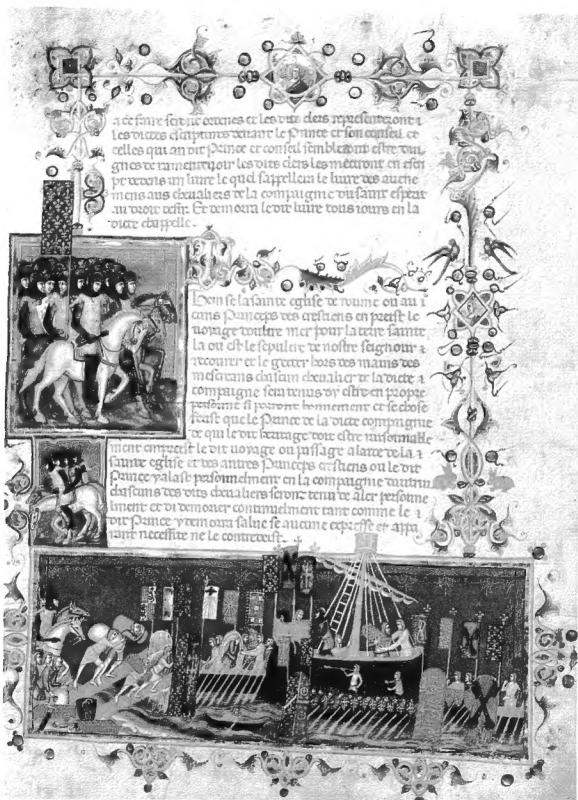 a ce faire seront ordenes et les diz clers representeront
les dictes escriptures devant le Prince et son conseil et
celles qui au dit Prince et conseil sembleront estre dui
gnes de ramentevoir les diz clers les mettront en escri
pt dedens un livre le quel sappellera le livre des avene
mens aus chevaliers de la compaignie du saint esperit
au droit desir. Et demorra le dit livre tous iours en la
dicte chappelle.
Item se la sainte eglise de roume ou au
cuns Princeps des crestiens en preist le
voyage doultre mer pour la terre sainte
la ou est le sepulcre de nostre seignour
recouvrer et le getter hors des mains des
mescreans chascun chevalier de la dicte
compaignie sera tenus dy estre en propre
personne si porront bonnement et se chose
feust que le Prince de la dicte compaignie
de qui le dit heritage doit estre raisonnable
ment empreist le dit voyage ou passage a larce de la
sainte eglise et des autres Princeps crestiens ou le dit
Prince y alast personnelment en la compaignie dautrui
chascuns des diz chevaliers seront tenu de aler personne
lment et di demorer continuelment tant comme le
dit Prince y demorra salve se aucune expresse et appa
rant necessite ne le contredeist.